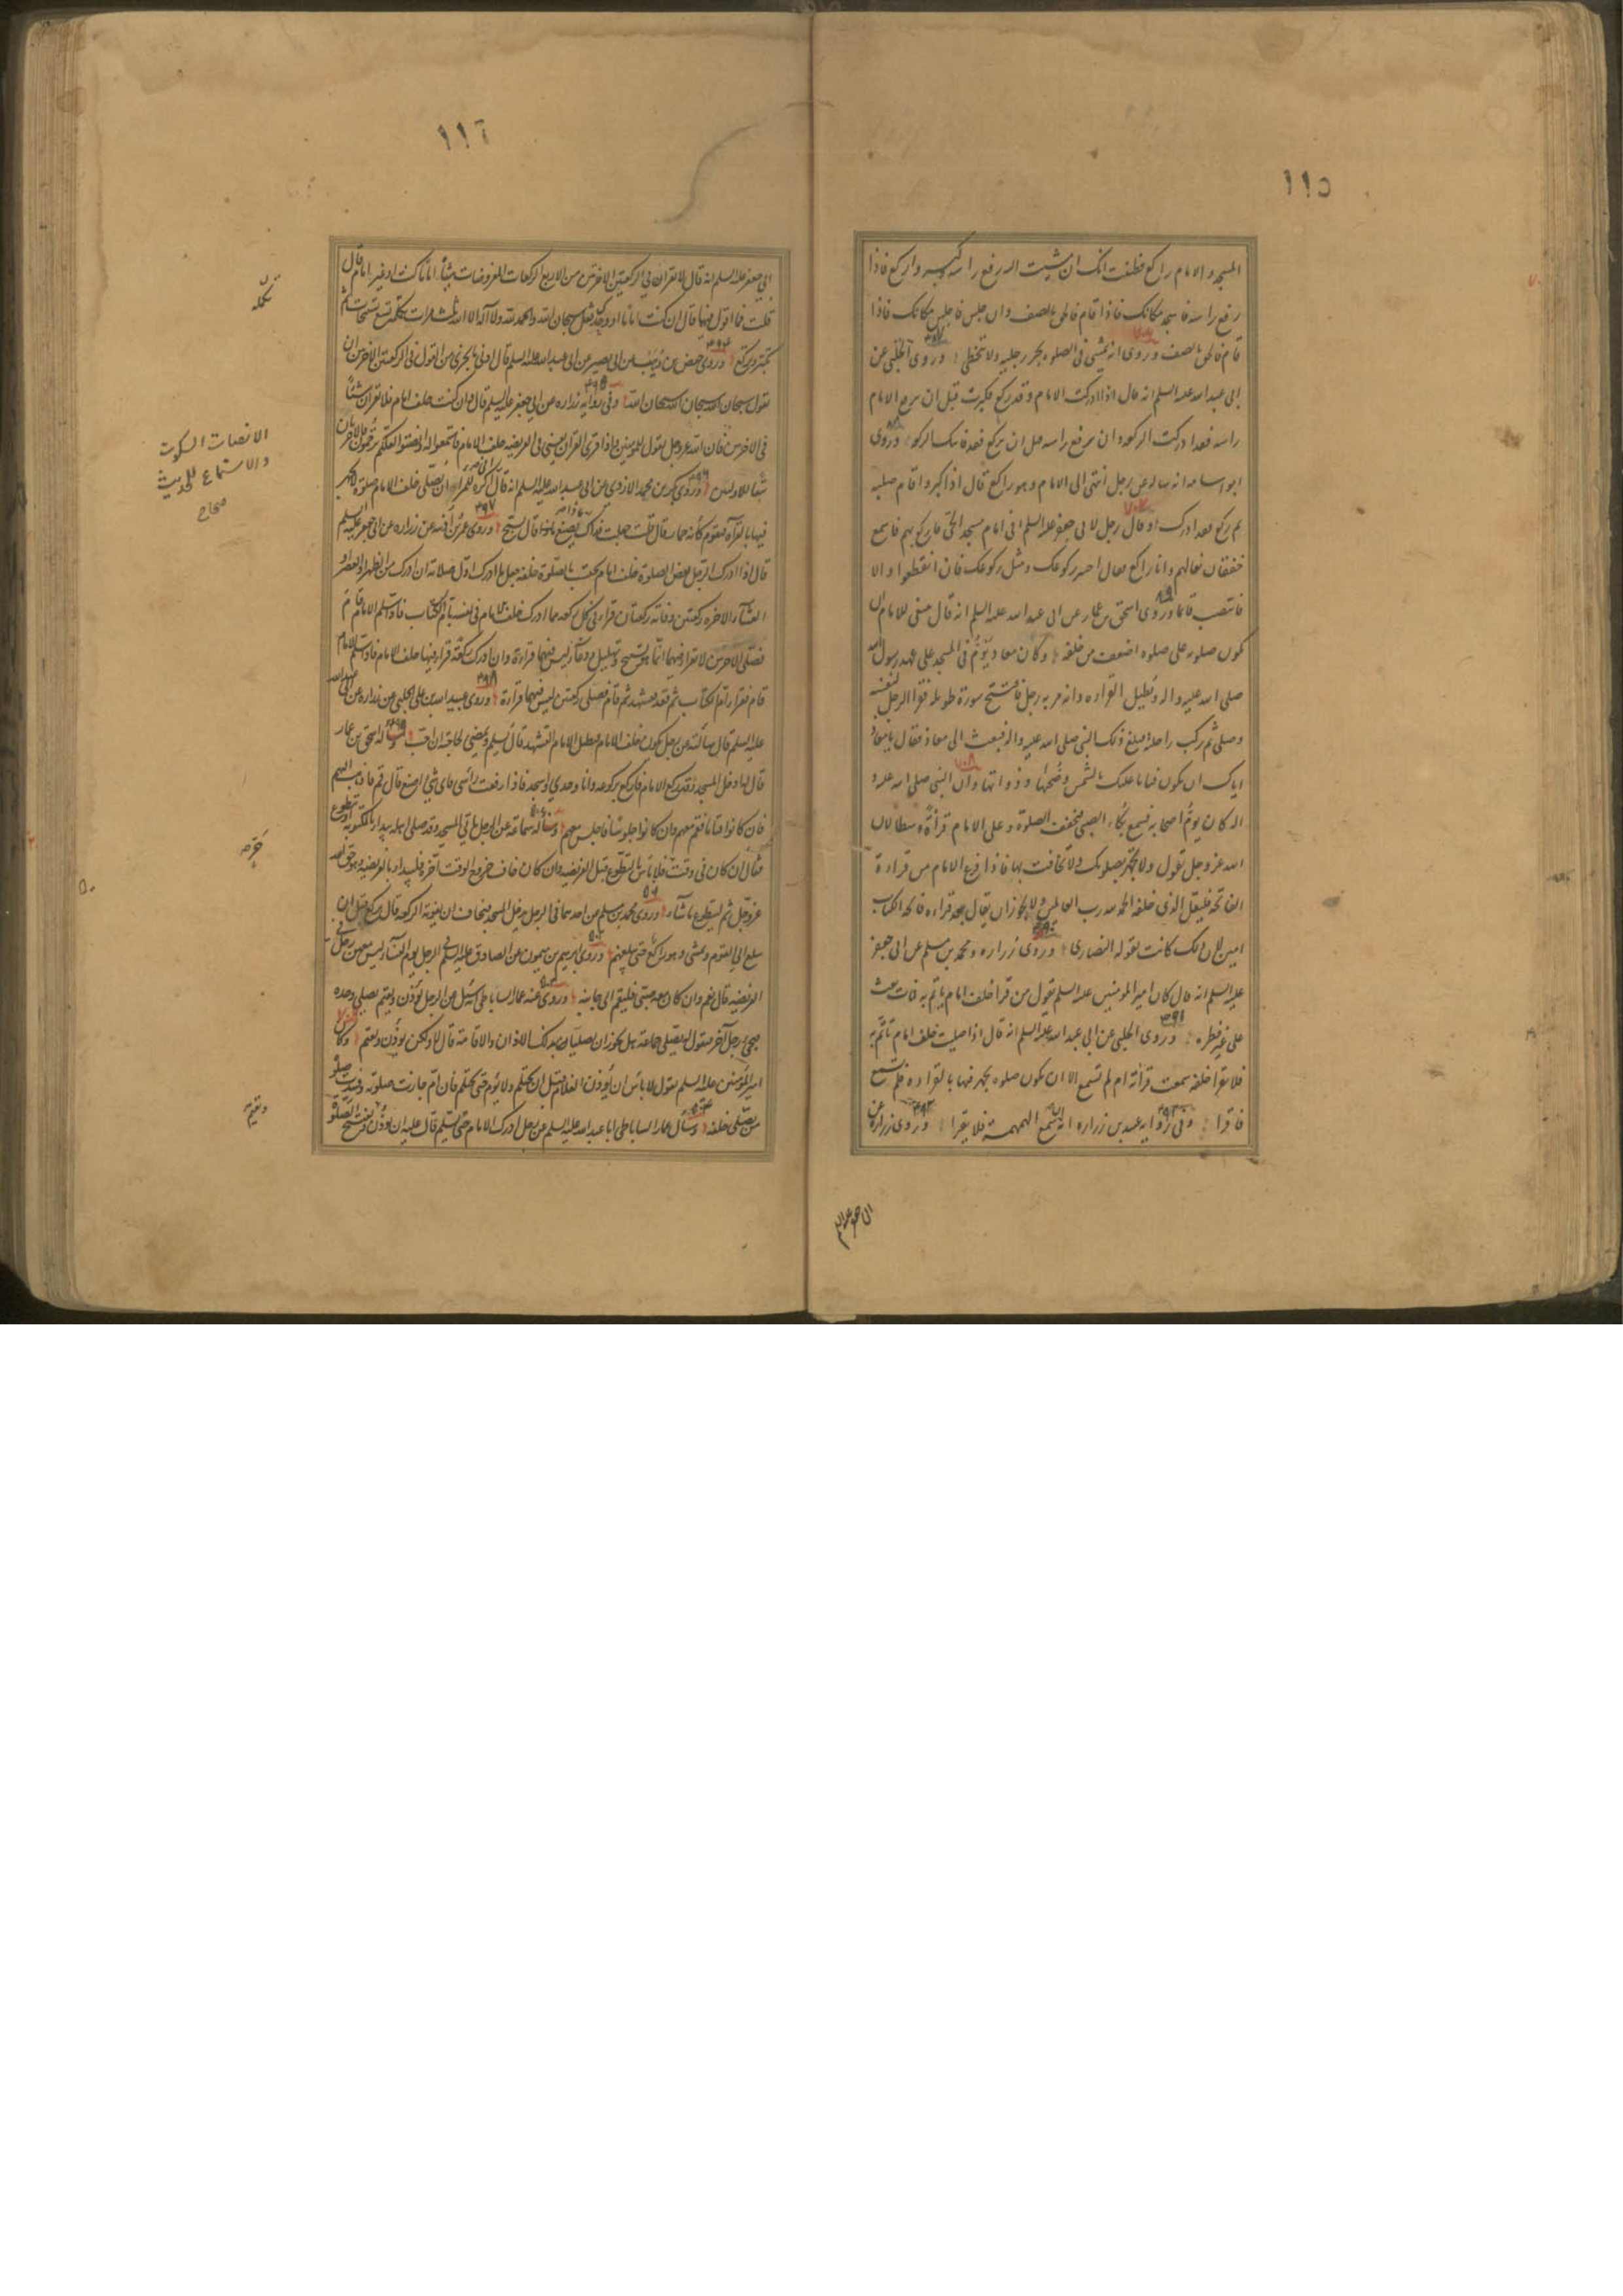 ١١٥
المسجد والامام راكع فظننت انك ان مشيت اليه رفع راسه فكبر واركع فاذا
رفع راسه فاسجد مكانك فاذا قام فالحق بالصف وان جلس فاجلس مكانك فاذا
قام فالحق بالصف وروى انه يمشى فى الصلوة يجر رجليه ولا يتخطى وروى الحلبى عن
ابى عبد الله عليه السلم انه قال اذا ادركت الامام وقد ركع فكبرت قبل ان يرفع الامام
راسه فقد ادركت الركعه وان رفع راسه قبل ان تركع فقد فاتتك الركعه وروى
ابو اسامه انه ساله عن رجل انتهى الى الامام وهو راكع قال اذا كبر واقام صلبه
ثم ركع فقد ادرك وقال رجل لابى جعفر عليه السلم انى امام مسجد الحى فاركع بهم فاسمع
خفقان نعالهم وانا راكع فقال اصبر ركوعك ومثل ركوعك فان انقطعوا والا
فانتصب قائما وروى اسحق بن عمار عن ابى عبد الله عليه السلم انه قال ينبغى للامام ان
تكون صلوته على صلوة اضعف من خلفه وكان معاذ يؤم فى المسجد على عهد رسول الله
صلى الله عليه واله ويطيل القراءه وانه مر به رجل فافتتح سورة طويلة فقرا الرجل لنفسه
وصلى ثم ركب راحلته فبلغ ذلك النبى صلى الله عليه واله فبعث الى معاذ فقال يا معاذ
اياك ان تكون فتانا عليك بالشمس وضحها وذواتها وان النبى صلى الله عليه و
اله كان يؤم اصحابه فيسمع بكاء الصبى فيخفف الصلوة وعلى الامام ان يقرا قراءة وسطا لان
الله عز وجل يقول ولا تجهر بصلوتك ولا تخافت بها فاذا فرغ الامام من قراءة
الفاتحة فليقل الذى خلفه الحمد لله رب العالمين ولا يجوز ان يقال بعد قراءه فاتحه الكتاب
امين لان ذلك كانت تقوله النصارى وروى زراره ومحمد بن مسلم عن ابى جعفر
عليه السلم انه قال كان امير المومنين عليه السلم يقول من قرا خلف امام ياتم به فمات بعث
على غير فطره وروى الحلبى عن ابى عبد الله عليه السلم انه قال اذا صليت خلف امام تاتم به
فلا تقرا خلفه سمعت قراءته ام لم تسمع الا ان تكون صلوه يجهر فيها بالقراءه فلم تسمع
فاقرا وفى روايه عبيد بن زراره انه ان سمع الهمهمة فلا يقرا وروى زراره عن
١١٦
ابى جعفر عليه السلم انه قال لا تقران فى الركعتين الاخيرتين من الاربع الركعات المفروضات شيئا اماما كنت او غير امام قال
قلت فما اقول فيها قال ان كنت اماما او وحدك فقل سبحان الله والحمد لله ولا اله الا الله ثلث مرات تكمله تسع تسبيحات ثم
تكبر وتركع وروى وهيب بن حفص عن ابى بصير عن ابى عبد الله عليه السلم قال ادنى ما يجزى من القول فى الركعتين الاخيرتين ان
تقول سبحان الله سبحان الله سبحان الله وفى روايه زراره عن ابى جعفر عليه السلم قال وان كنت خلف امام فلا تقران شيئا
فى الاولتين فان الله عز وجل يقول للمومنين واذا قرى القران يعنى فى الفريضه خلف الامام فاستمعوا له وانصتوا لعلكم ترحمون فالاخيرتان
تبعا للاوليين وروى بكر بن محمد الازدى عن ابى عبد الله عليه السلم انه قال اكره للمرء ان يصلى خلف الامام صلوة لا يجهر
فيها بالقراءة فيقوم كانه حمار قال قلت جعلت فداك فيصنع ماذا قال يسبح وروى عمر بن اذينه عن زراره عن ابى جعفر عليه السلم
قال اذا ادرك الرجل بعض الصلوة خلف امام يحتسب بالصلوة خلفه جعل ما ادرك اول صلاته ان ادرك من الظهر او العصر او
العشاء الاخره ركعتين وفاته ركعتان قرا فى كل ركعه مما ادرك خلف الامام فى نفسه بام الكتاب فاذا سلم الامام قام
فصلى الاخيرتين لا يقرا فيهما انما هو تسبيح وتهليل ودعاء ليس فيهما قراءة وان ادرك ركعة قرا فيها خلف الامام فاذا سلم الامام
قام فقرا بام الكتاب ثم قعد فتشهد ثم قام فصلى ركعتين ليس فيهما قراءة وروى عبيد الله بن على الحلبى عن ابى عبد الله
عليه السلم قال سالته عن رجل يكون خلف الامام فيطيل الامام التشهد قال يسلم ويمضى لحاجته ان احب وساله اسحق بن عمار
قال ادخل المسجد وقد ركع الامام فاركع بركوعه وانا وحدى واسجد فاذا رفعت راسى فاى شئ اصنع قال قم فاذهب اليهم
فان كانوا قياما فقم معهم وان كانوا جلوسا فاجلس معهم وساله سماعة عن الرجل ياتى المسجد وقد صلى اهله يبتدا بالمكتوبه او يتطوع
فقال ان كان فى وقت فلا باس بالتطوع قبل الفريضه وان كان خاف خروج الوقت اخره فليبدا بالفريضه وهو حق الله
عز وجل ثم ليتطوع ما شاء وروى محمد بن مسلم عن احدهما فى الرجل يدخل المسجد فيخاف ان يفوته الركعه قال يركع قبل ان
يبلغ الى القوم ويمشى وهو راكع حتى يبلغهم وروى ابرهيم بن ميمون عن الصادق عليه السلم فى الرجل يؤم النساء ليس معهن رجل فى
الفريضه قال نعم وان كان معه صبى فليقم الى جانبه وروى عنه عمار الساباطى انه سئل عن الرجل يؤذن ويقيم ليصلى وحده
فيجى رجل آخر فيقول له نصلى جماعة هل يجوز ان يصليا بذلك الاذان والاقامة قال لا ولكن يؤذن ويقيم وكان
امير المؤمنين عليه السلم يقول لا باس ان يؤذن الغلام قبل ان يحتلم ولا يؤم حتى يحتلم فان ام جازت صلوته وفسدت صلوة
من يصلى خلفه وسال عمار الساباطى ابا عبد الله عليه السلم عن رجل ادرك الامام حين يسلم قال عليه ان يؤذن ويفتتح الصلوة
تكمله
الانصات السكوت
والاستماع للحديث
صحاح
ويقيم